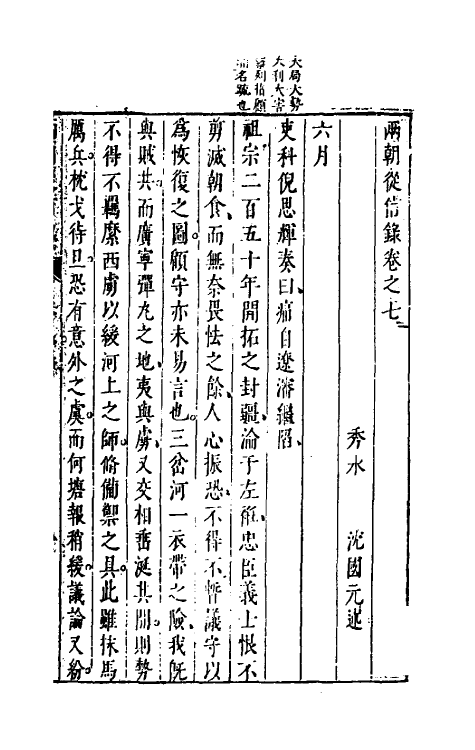 兩朝從信錄卷之七
秀水 沈國元述
六月
吏科倪思輝奏曰痛自遼瀋繼陷
祖宗二百五十年開拓之封疆淪于左衽忠臣義士恨不
剪滅朝食而無奈畏怯之餘人心振恐不得不暫議守以
為恢復之圖顧守亦未易言也三岔河一衣帶之險我既
與賊共而廣寧彈丸之地夷與虜又交相垂涎其間則勢
不得不羈縻西虜以緩河上之師脩備禦之具此雖抹馬
厲兵枕戈待旦恐有意外之虞而何塘報稍緩議論又紛
大局大勢
大利大害